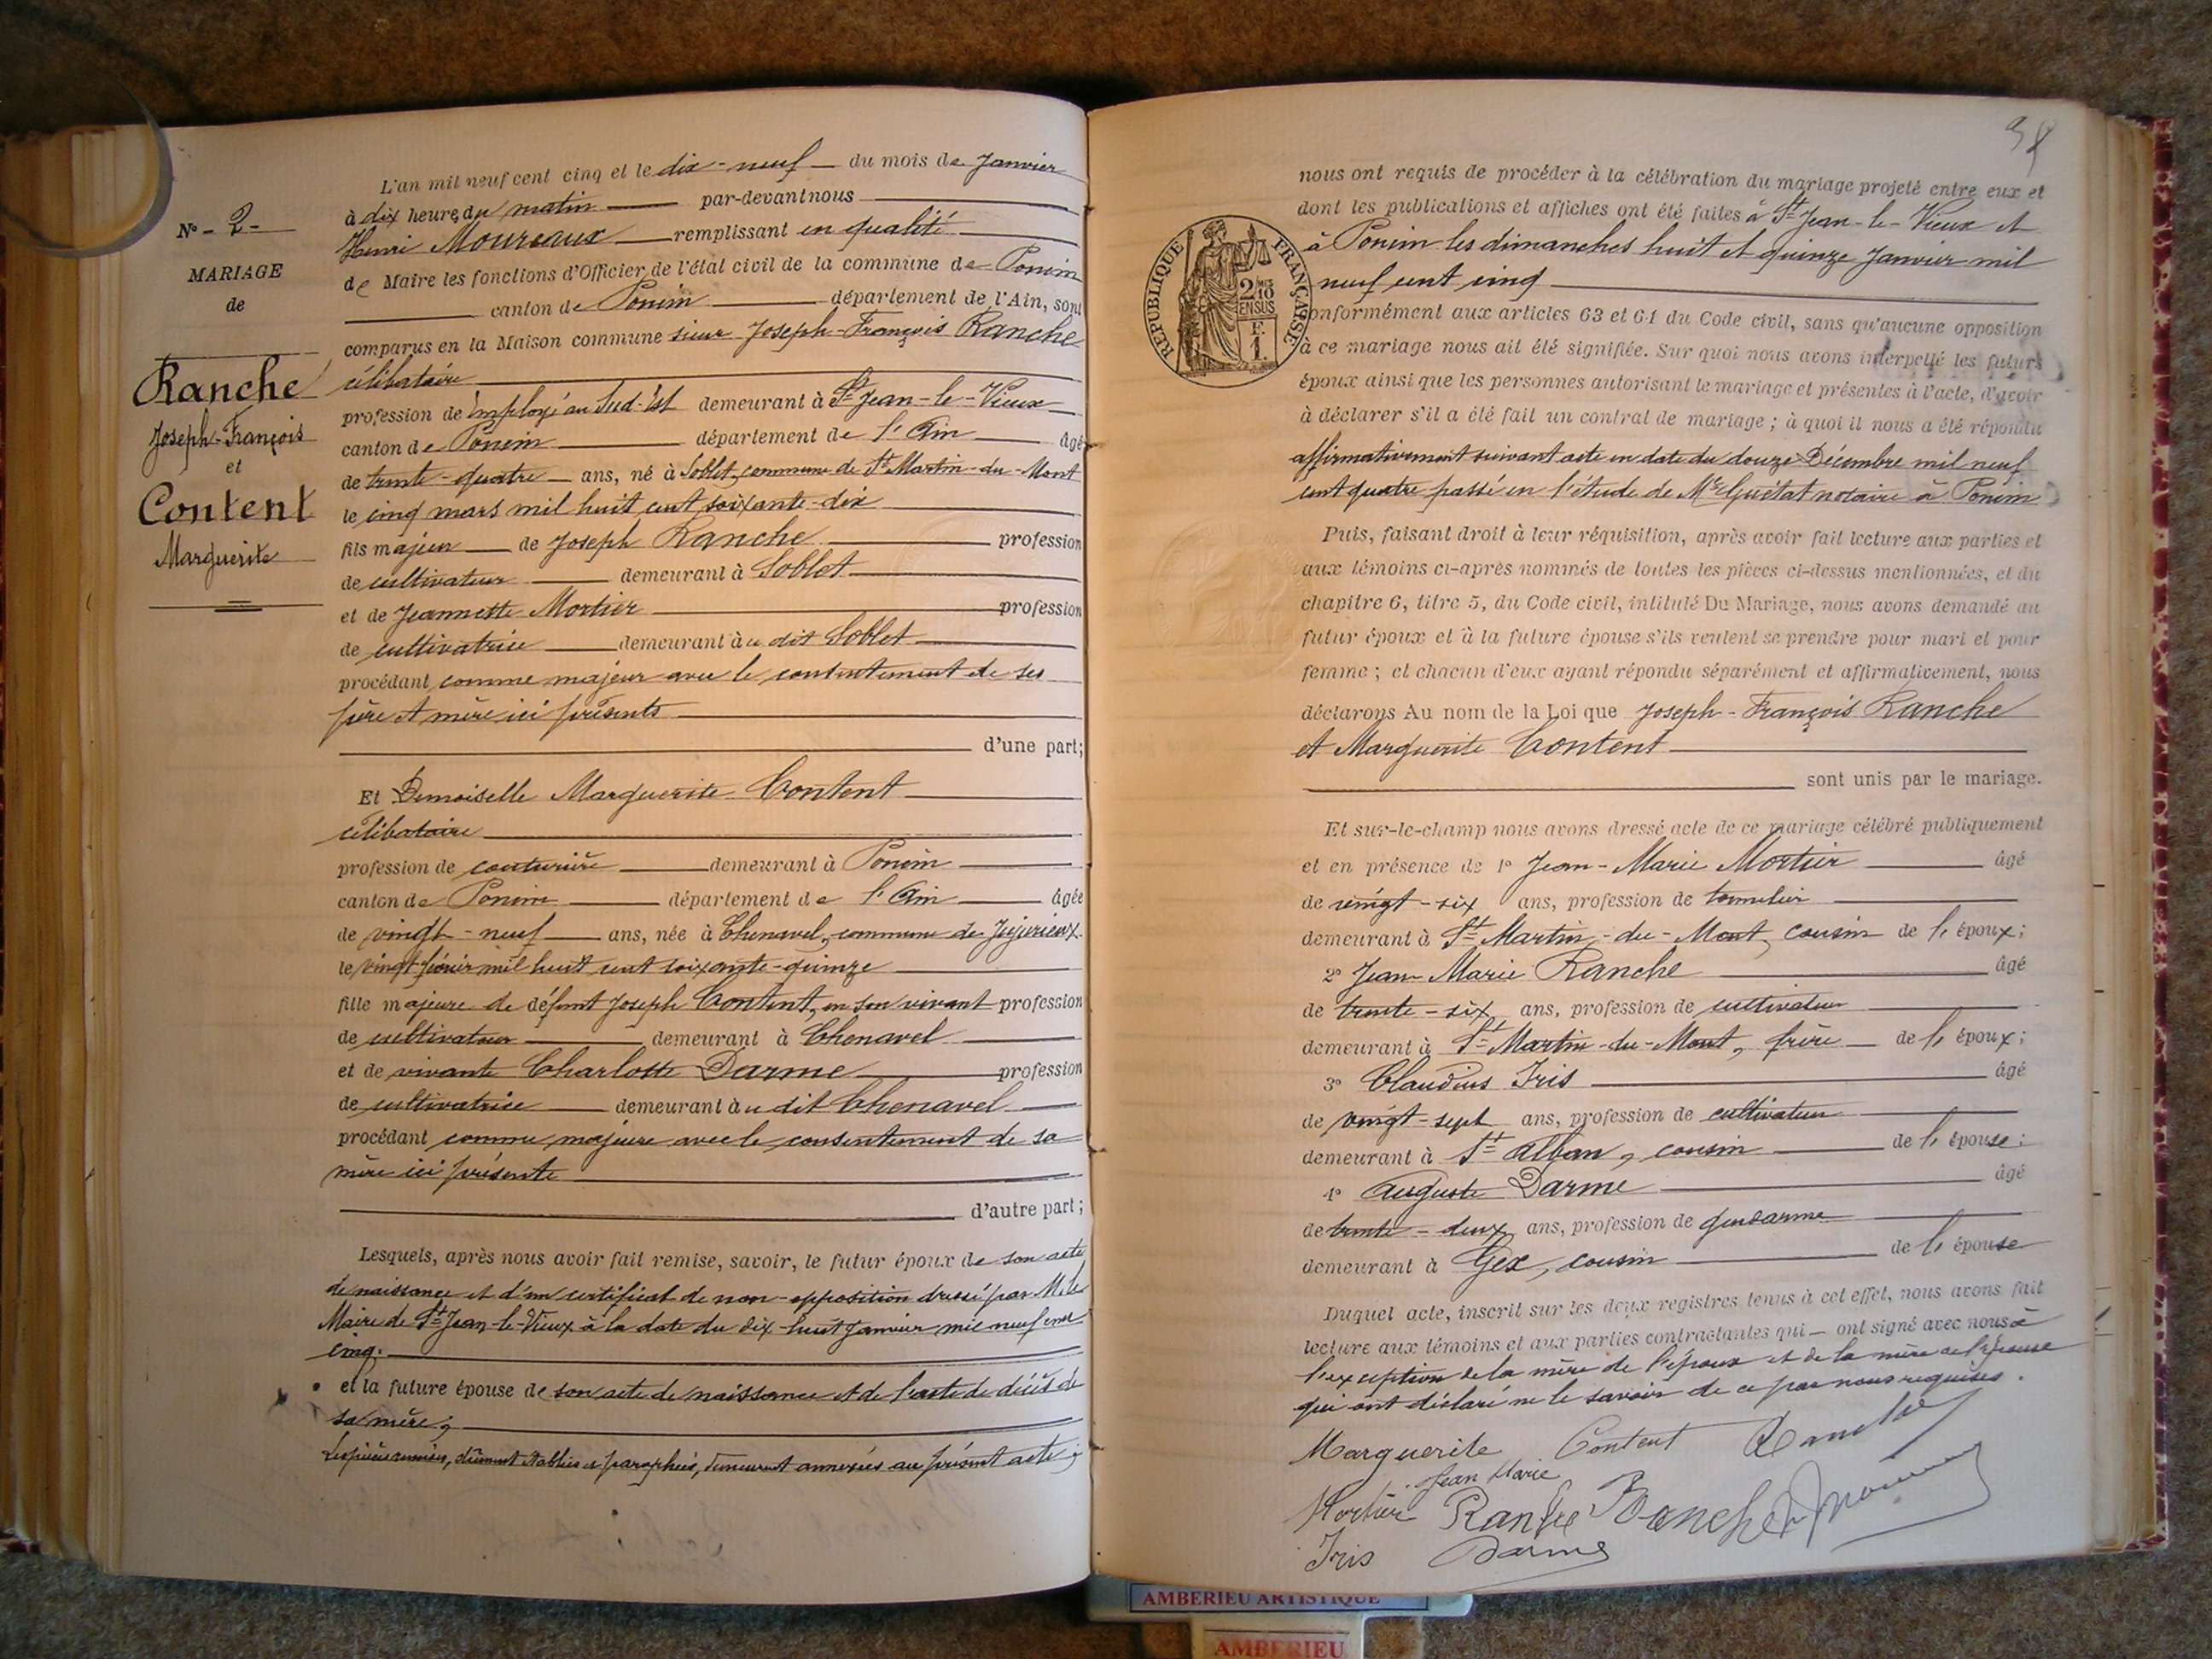 L'an mil neuf cent cinq et le dix-neuf du mois de Janvier
à dix heures du matin par-devant nous
Henri Moureaux remplissant en qualité
de Maire les fonctions d'Officier de l'état civil de la commune de Poncin
canton de Poncin département de l'Ain, sont
comparus en la Maison commune sieur Joseph-François Ranche
célibataire
profession de Employé au Sud-Est demeurant à St Jean-le-Vieux
canton de Poncin département de l'Ain âgé
de trente-quatre ans, né à Soblet, commune de St Martin-du-Mont
le cinq mars mil huit cent soixante-dix
fils majeur de Joseph Ranche profession
de cultivateur demeurant à Soblet
et de Jeannette Mortier profession
de cultivatrice demeurant au dit Soblet
procédant comme majeur avec le consentement de ses
père et mère ici présents
d'une part;
Et Demoiselle Marguerite Content
célibataire
profession de couturière demeurant à Poncin
canton de Poncin département de l'Ain âgée
de vingt-neuf ans, née à Chenavel, commune de Jujurieux
le vingt février mil huit cent soixante-quinze
fille majeure de défunt Joseph Content, en son vivant profession
de cultivateur demeurant à Chenavel
et de vivante Charlotte Darme profession
de cultivatrice demeurant au dit Chenavel
procédant comme majeure avec le consentement de sa
mère ici présente
d'autre part;
Lesquels, après nous avoir fait remise, savoir, le futur époux de son acte
de naissance et d'un certificat de non-opposition dressé par M. le
Maire de St Jean-le-Vieux à la date du dix-huit Janvier mil neuf cent
cinq.
et la future épouse de son acte de naissance et de l'acte de décès de
sa mère,
Les pièces remises, dûment établies et paraphées, demeurent annexées au présent acte;
No 2
MARIAGE
de
Ranche
Joseph-François
et
Content
Marguerite
nous ont requis de procéder à la célébration du mariage projeté entre eux et
dont les publications et affiches ont été faites à St Jean-le-Vieux et
à Poncin les dimanches huit et quinze Janvier mil
neuf cent cinq
conformément aux articles 63 et 64 du Code civil, sans qu'aucune opposition
à ce mariage nous ait été signifiée. Sur quoi nous avons interpellé les futurs
époux ainsi que les personnes autorisant le mariage et présentes à l'acte, d'avoir
à déclarer s'il a été fait un contrat de mariage; à quoi il nous a été répondu
affirmativement suivant acte en date du douze Décembre mil neuf
cent quatre passé en l'étude de Me Guétat notaire à Poncin
Puis, faisant droit à leur réquisition, après avoir fait lecture aux parties et
aux témoins ci-après nommés de toutes les pièces ci-dessus mentionnées, et du
chapitre 6, titre 5, du Code civil, intitulé Du Mariage, nous avons demandé au
futur époux et à la future épouse s'ils veulent se prendre pour mari et pour
femme; et chacun d'eux ayant répondu séparément et affirmativement, nous
déclarons Au nom de la Loi que Joseph-François Ranche
et Marguerite Content
sont unis par le mariage.
Et sur-le-champ nous avons dressé acte de ce mariage célébré publiquement
et en présence de 1o Jean-Marie Mortier âgé
de vingt-six ans, profession de tonnelier
demeurant à St Martin-du-Mont, cousin de l'époux;
2o Jean Marie Ranche âgé
de trente-six ans, profession de cultivateur
demeurant à St Martin-du-Mont, frère de l'époux;
3o Claudius Iris âgé
de vingt-sept ans, profession de cultivateur
demeurant à St Alban, cousin de l'épouse;
4o Auguste Darme âgé
de trente-deux ans, profession de gendarme
demeurant à Gex, cousin de l'épouse
Duquel acte, inscrit sur les deux registres tenus à cet effet, nous avons fait
lecture aux témoins et aux parties contractantes qui ont signé avec nous à
l'exception de la mère de l'époux et de la mère de l'épouse
qui ont déclaré ne le savoir de ce par nous requises.
Marguerite Content Ranche
Jean Marie
Mortier Ranche Ranche
Iris Darme
REPUBLIQUE FRANÇAISE
2/10
EN SUS
F.
1.
AMBERIEU ARTISTIQUE
AMBERIEU